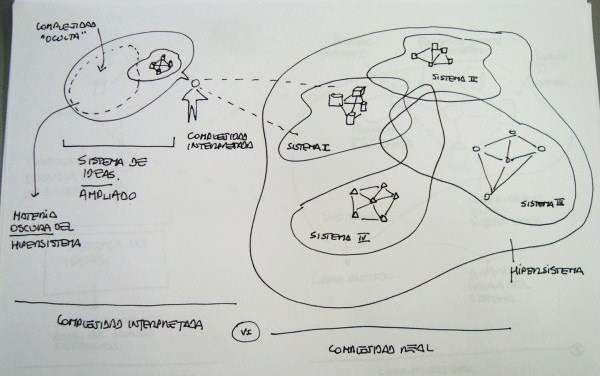 COMPLEJIDAD
"OCULTA"
SISTEMA II
SISTEMA I
COMPLEJIDAD
INTERPRETADA
SISTEMA DE
IDEAS.
AMPLIADO
SISTEMA III
MATERIA
OSCURA DEL
HIPERSISTEMA
SISTEMA IV
HIPERSISTEMA
COMPLEJIDAD INTERPRETADA
VI
COMPLEJIDAD REAL